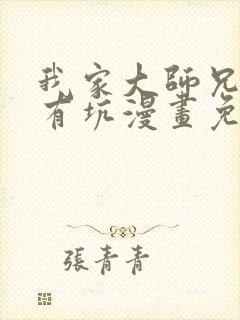 我家大師兄
有坑漫畫免
張青青